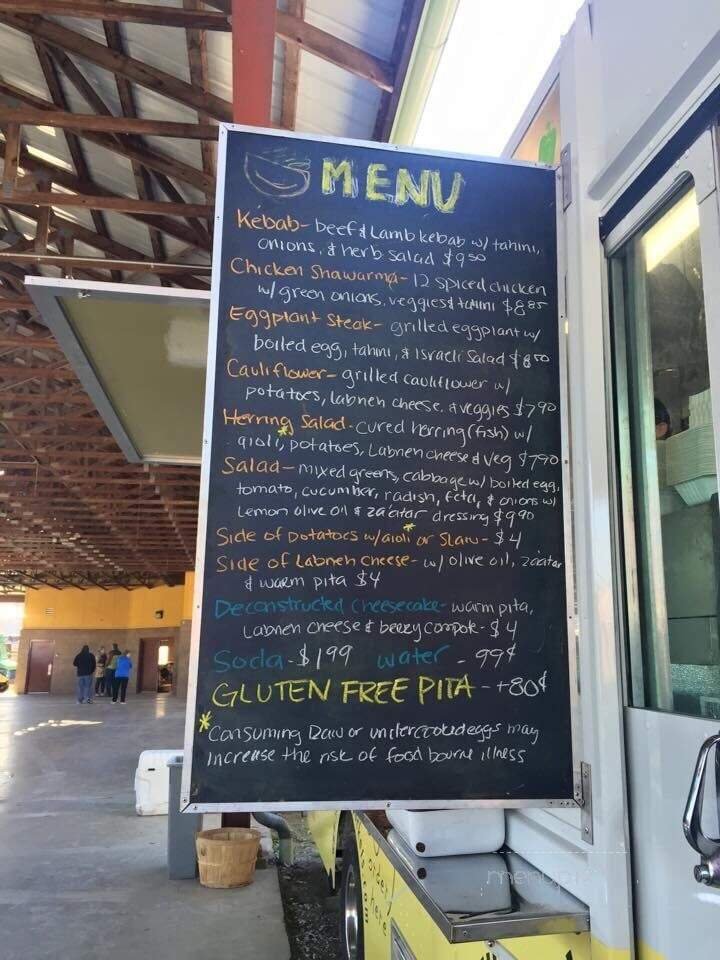 MENU
Kebab- beef & Lamb kebab w/ tahini,
onions, & herb salad $9 50
Chicken Shawarma - 12 spiced chicken
w/ green onions, veggies & tahini $8 85
Eggplant Steak- grilled eggplant w/
boiled egg, tahini, & Israeli Salad $8 50
Cauliflower- grilled cauliflower w/
potatoes, labneh cheese, & veggies $7 90
Herring Salad- cured herring (fish) w/
aioli*, potatoes, Labneh cheese & veg $7 90
Salad- mixed greens, cabbage w/ boiled egg,
tomato, cucumber, radish, feta, & onions w/
Lemon olive oil & za'atar dressing $9 90
Side of potatoes w/ aioli* or Slaw- $4
Side of Labneh Cheese- w/ olive oil, zaatar
& warm pita $4
Deconstructed Cheesecake- warm pita,
Labneh cheese & berry compote - $4
Soda - $1 99 water - 99¢
GLUTEN FREE PITA - +80¢
*Consuming Raw or undercooked eggs may
increase the risk of food bourne illness
order
here